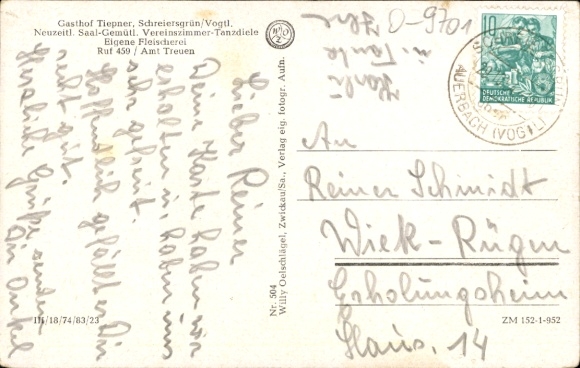 Gasthof Tiepner, Schreiersgrün/Vogtl.
Neuzeitl. Saal-Gemütl. Vereinszimmer-Tanzdiele
Eigene Fleischerei
Ruf 459 / Amt Treuen
Lieber Reiner
Deine Karte haben wir
erhalten u. haben uns
sehr gefreut.
Hoffentlich gefällt es Dir
recht gut.
Herzliche Grüße senden
Dir Onkel
u. Tante
Ilse
III/18/74/83/23
Nr. 504
Willy Oelschlägel, Zwickau/Sa., Verlag eig. fotogr. Aufn.
D-9701
10
DEUTSCHE
DEMOKRATISCHE REPUBLIK
AUERBACH (VOGTL)
An
Reiner Schmidt
Wiek-Rügen
Erholungsheim
Haus. 14
ZM 152-1-952